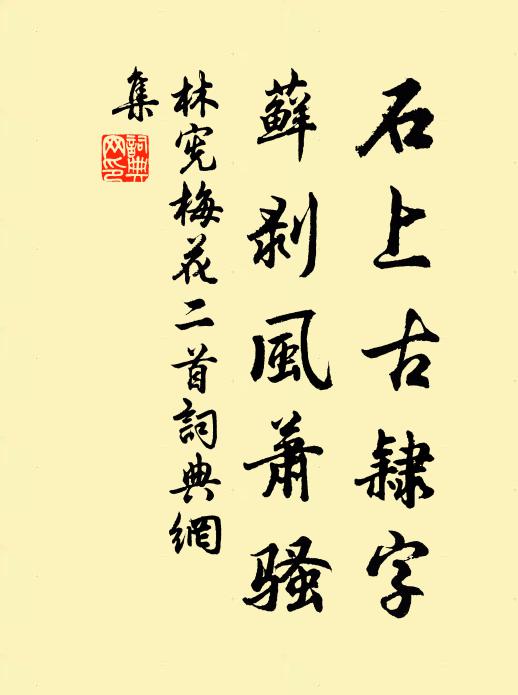 石上古隸字
蘚剥風蕭骚
林宪梅花二首詞典網
集
詞典网印